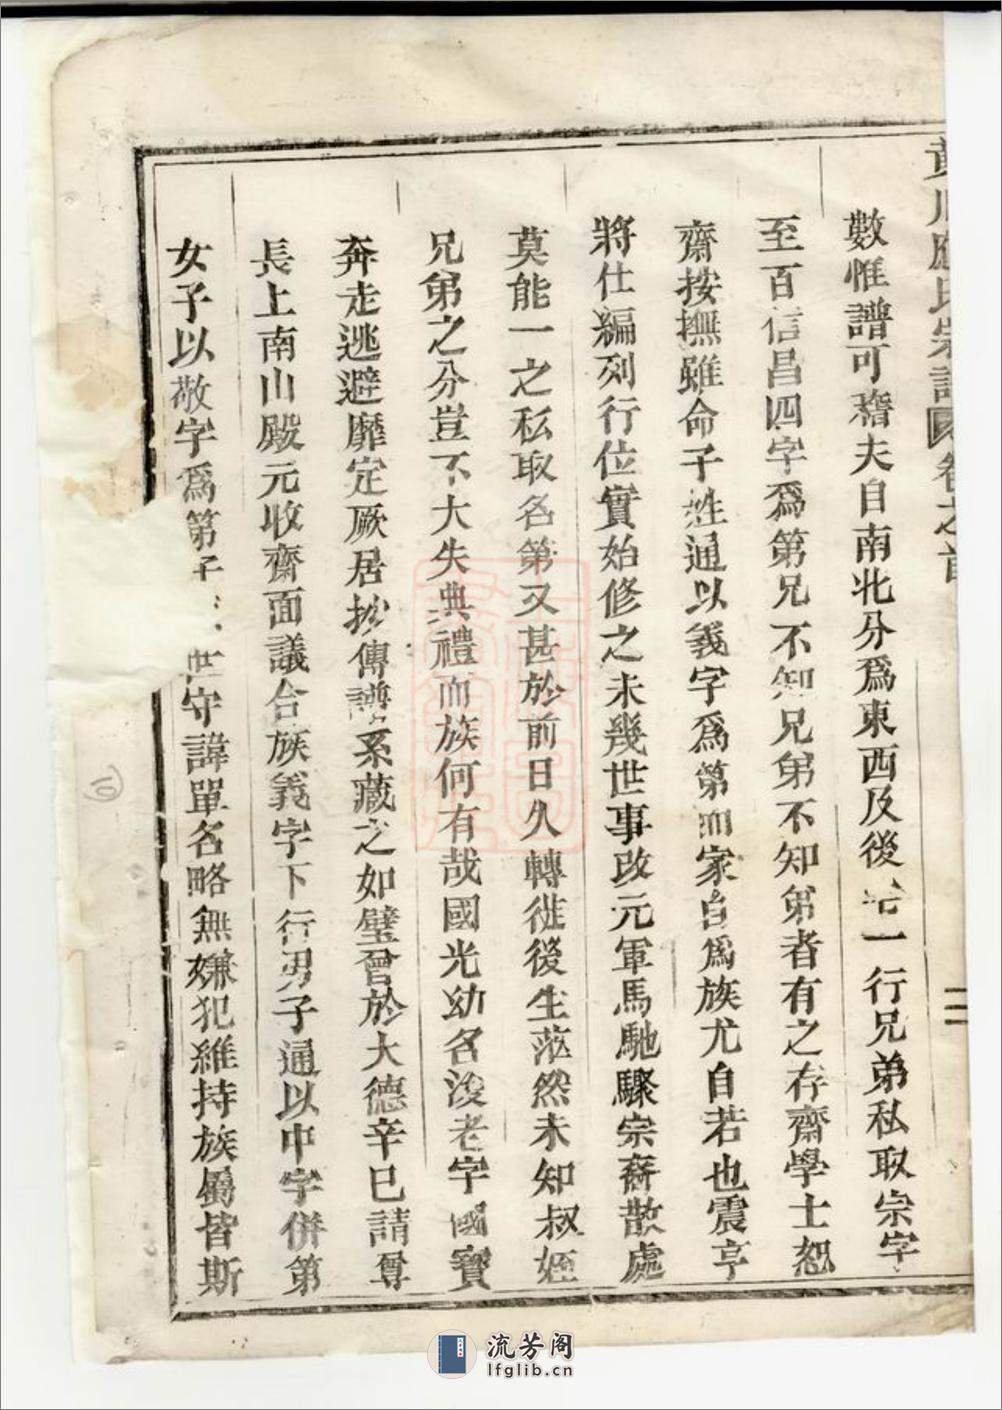 黃川應氏宗譜 卷之首
二
數惟譜可稽夫自南北分爲東西及後 一行兄弟私取宗字
至百信昌四字爲第兄不知兄弟不知弟者有之存齋學士恕
齋按撫雖命子姓通以義字爲第而家自爲族尤自若也震亨
將仕編列行位實始修之未幾世事改元軍馬馳驟宗裔散處
莫能一之私取名第又甚於前日久轉徙後生茫然未知叔姪
兄弟之分豈不大失典禮而族何有哉國光幼名浚老字國寶
奔走逃避靡定厥居抄傳譜系藏之如璧曾於大德辛巳請尊
長上南山殿元收齋面議合族義字下行男子通以中字併第
女子以敬字爲第 世守諱單名略無嫌犯維持族屬皆斯
流芳阁
lfglib.cn